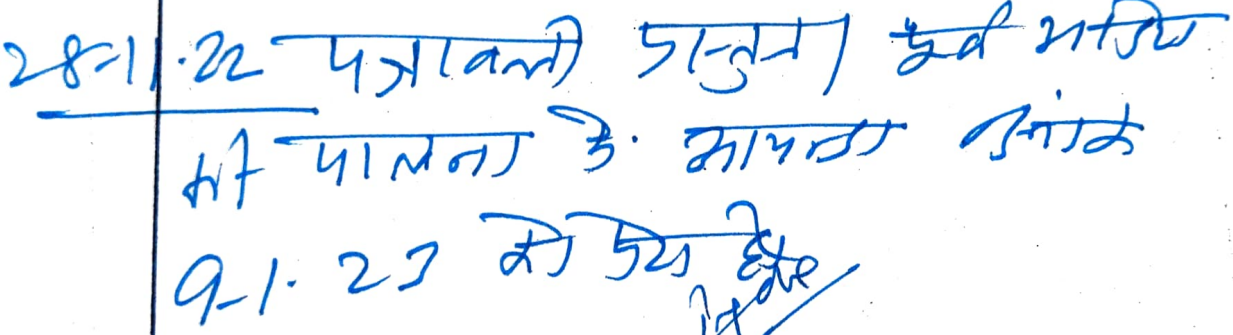 28-11-22 पत्रावली प्रस्तुत। पूर्व आदेश
की पालना में पत्रावली दिनांक
9-1-23 को पेश हो